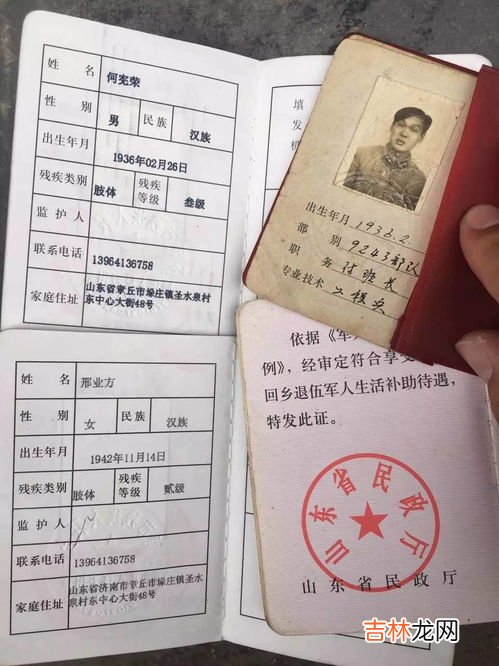 姓 名 何宪荣
性 别 男 民族 汉族
出生年月 1936年02月26日
残疾类别 肢体 残疾等级 叁级
监 护 人
联系电话 13964136758
家庭住址 山东省章丘市垛庄镇圣水泉村
东中心大街48号
填
发
机
出生年月 1936.2.
部 别 9243部队
职 务 付班长
专业技术 工程兵
姓 名 邢业方
性 别 女 民族 汉族
出生年月 1942年11月14日
残疾类别 肢体 残疾等级 贰级
监 护 人
联系电话 13964136758
家庭住址 山东省济南市章丘市垛庄镇圣水
泉村东中心大街48号
依据《军
例》，经审定符合享受
回乡退伍军人生活补助待遇，
特发此证。
山东省民政厅
山东省民政厅
吉林龙网